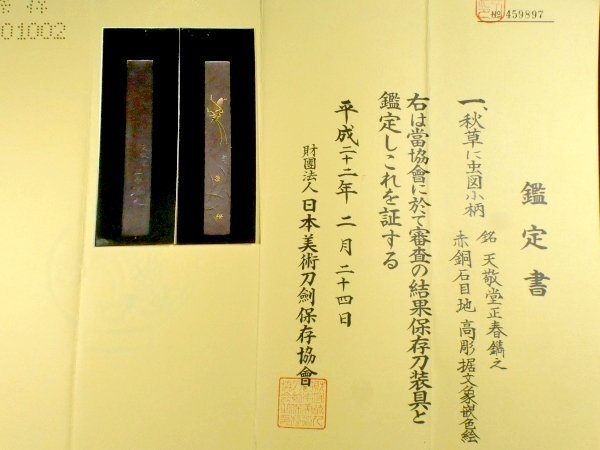 № 459897
鑑定書
一、秋草に虫図小柄
銘 天敬堂正春鐫之
赤銅石目地 高彫据文象嵌色絵
右は當協會に於て審査の結果保存刀装具と
鑑定しこれを証する
平成二十二年 二月 二十四日
財團法人 日本美術刀劍保存協會
01002